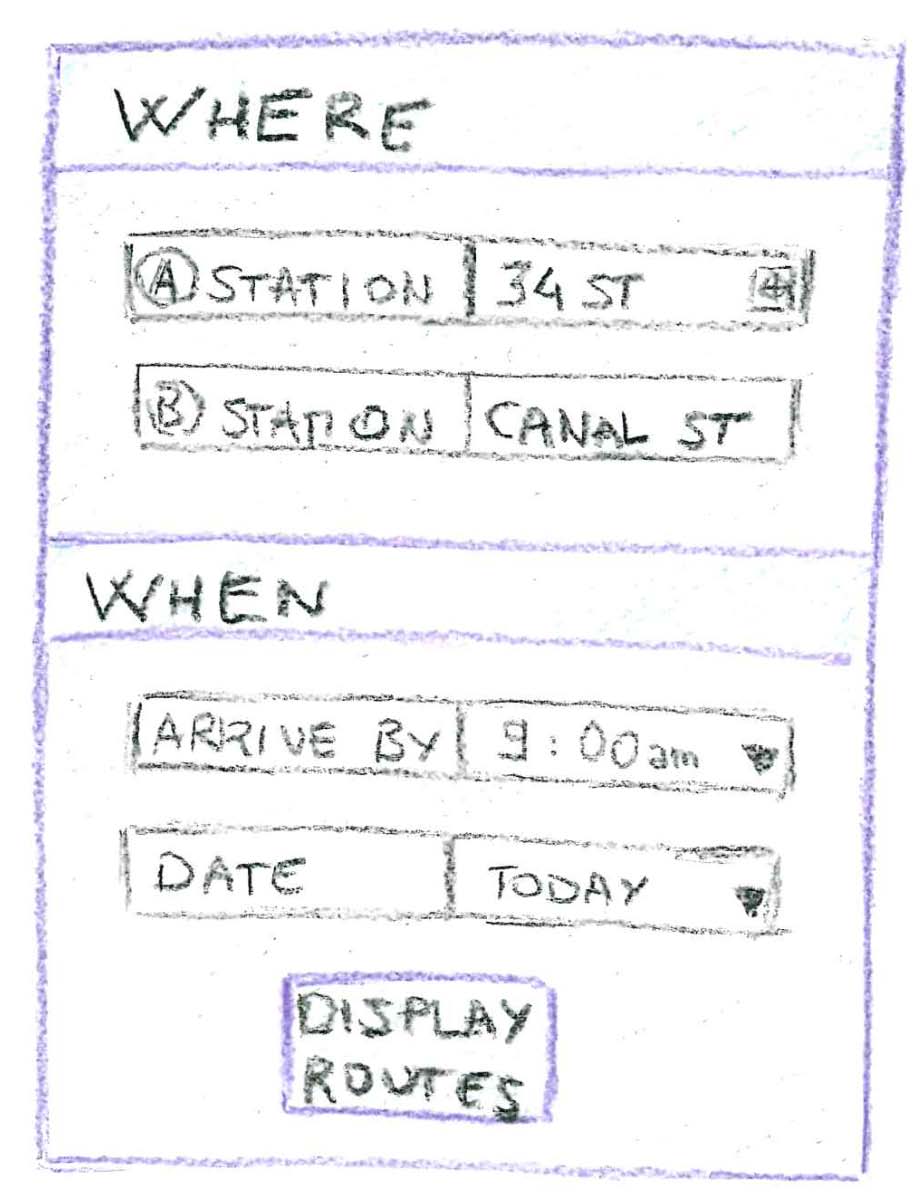 WHERE
A STATION 34 ST
B STATION CANAL ST
WHEN
ARRIVE BY 9:00am
DATE TODAY
DISPLAY
ROUTES